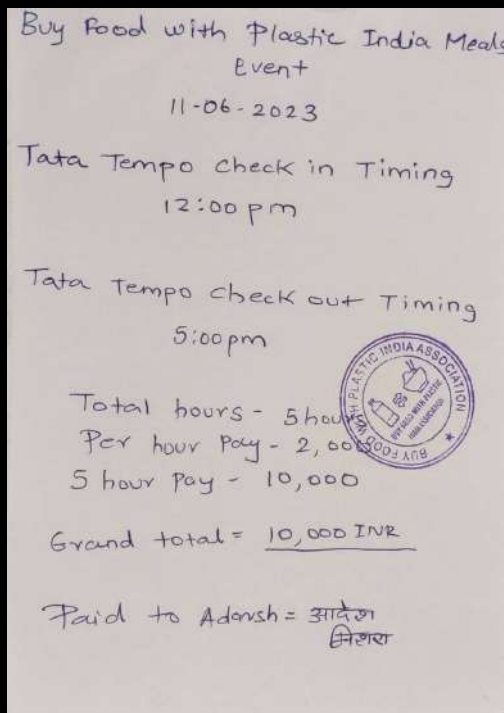 Buy Food with Plastic India Meals
Event
11-06-2023
Tata Tempo check in Timing
12:00 pm
Tata Tempo check out Timing
5:00pm
Total hours - 5 hour
Per hour Pay - 2,000
5 hour Pay - 10,000
Grand total = 10,000 INR
Paid to Adarsh = आदेश
मिशरा
BUY FOOD WITH PLASTIC INDIA ASSOCIATION
BUY FOOD WITH PLASTIC
INDIA ASSOCIATION